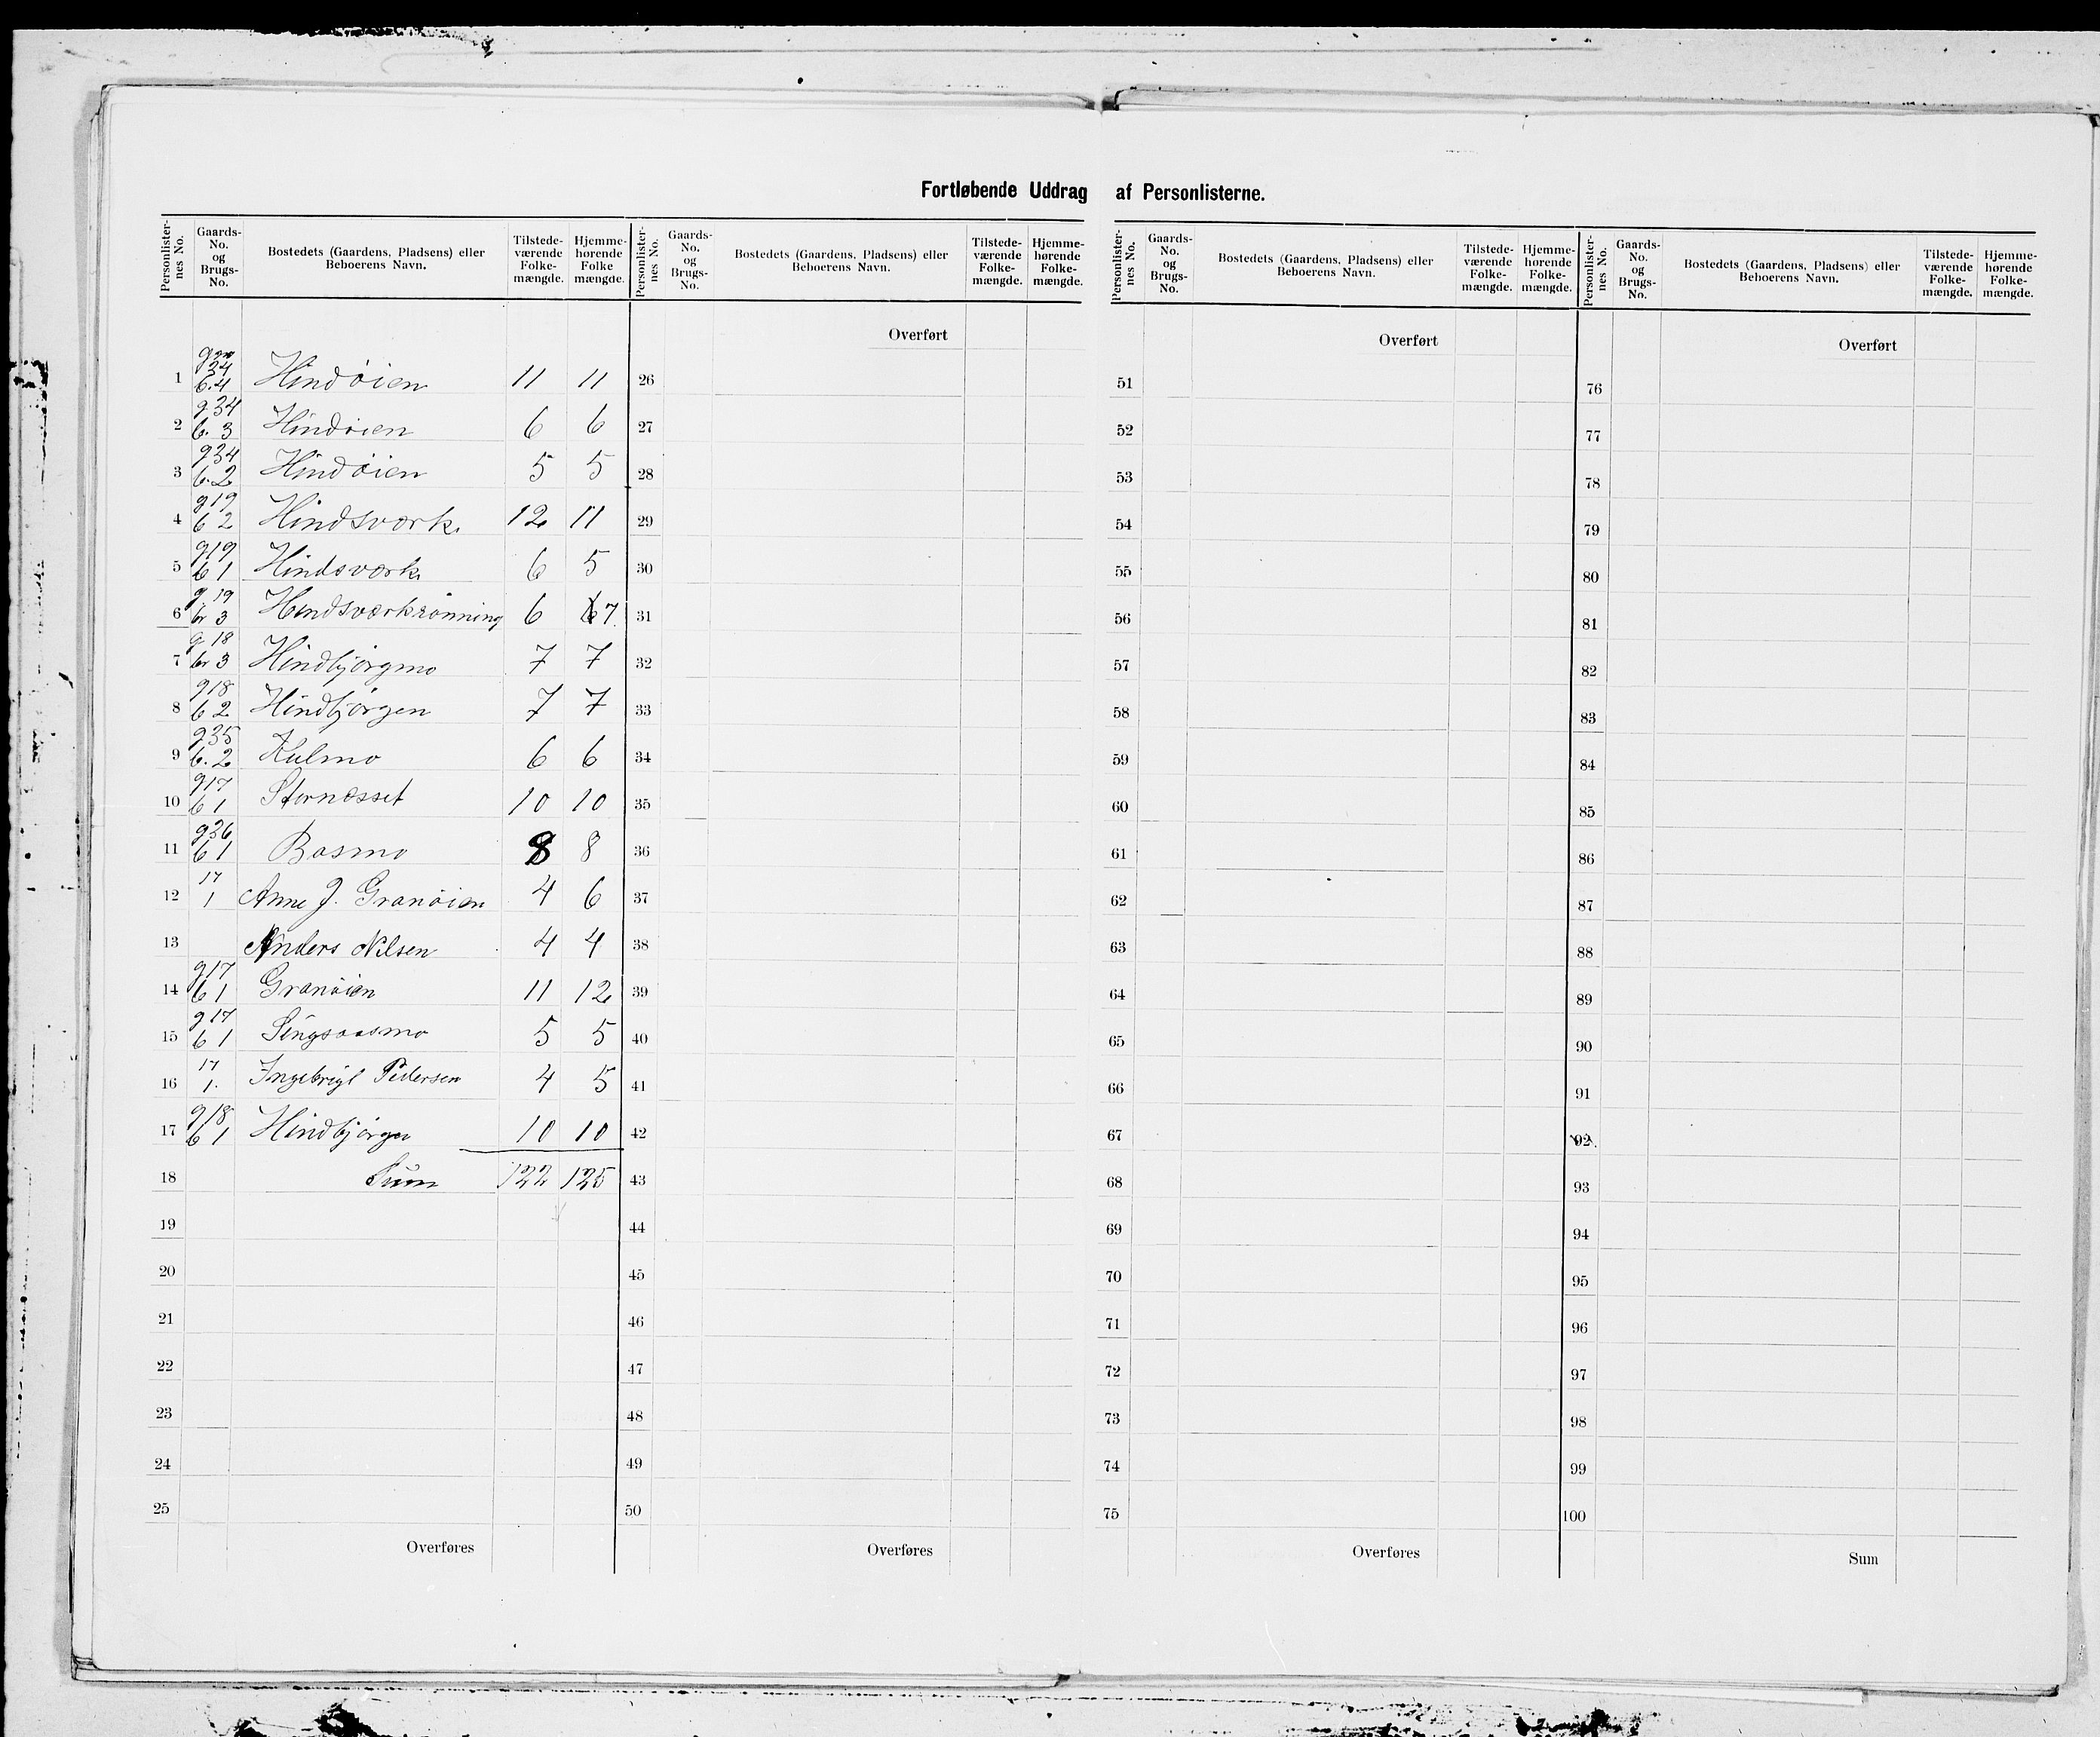 Fortløbende Uddrag af Personlisterne.
Personlisternes No. Gaards-No. og Brugs-No. Bostedets (Gaardens, Pladsens) eller Beboerens Navn. Tilstedeværende Folkemængde. Hjemmehørende Folkemængde.
1 g 34 b. 4 Hindöien 11 11
2 g 34 b. 3 Hindöien 6 6
3 g 34 b. 2 Hindöien 5 5
4 g 19 b 2 Hindsværk. 12 11
5 g 19 b 1 Hindsværk 6 5
6 g 19 br 3 Hendsværkrönning 6 7
7 g 18 br 3 Hindbjörgmo 7 7
8 g 18 b 2 Hindbjörgen 7 7
9 g 35 b. 2 Kulmo 6 6
10 g 17 b 1 Stornæsset 10 10
11 g 36 b 1 Basmo 8 8
12 17 1 Anne J. Granöien 4 6
13 Anders Nilsen 4 4
14 g 17 b 1 Granöien 11 12
15 g 17 b 1 Singsaasmo 5 5
16 17 1. Ingebrigt Pedersen 4 5
17 g 18 b 1 Hindbjörgen 10 10
18 Sum 122 125
19
20
21
22
23
24
25
Overføres
Personlisternes No. Gaards-No. og Brugs-No. Bostedets (Gaardens, Pladsens) eller Beboerens Navn. Tilstedeværende Folkemængde. Hjemmehørende Folkemængde.
Overført
26
27
28
29
30
31
32
33
34
35
36
37
38
39
40
41
42
43
44
45
46
47
48
49
50
Overføres
Personlisternes No. Gaards-No. og Brugs-No. Bostedets (Gaardens, Pladsens) eller Beboerens Navn. Tilstedeværende Folkemængde. Hjemmehørende Folkemængde.
Overført
51
52
53
54
55
56
57
58
59
60
61
62
63
64
65
66
67
68
69
70
71
72
73
74
75
Overføres
Personlisternes No. Gaards-No. og Brugs-No. Bostedets (Gaardens, Pladsens) eller Beboerens Navn. Tilstedeværende Folkemængde. Hjemmehørende Folkemængde.
Overført
76
77
78
79
80
81
82
83
84
85
86
87
88
89
90
91
92
93
94
95
96
97
98
99
100
Sum